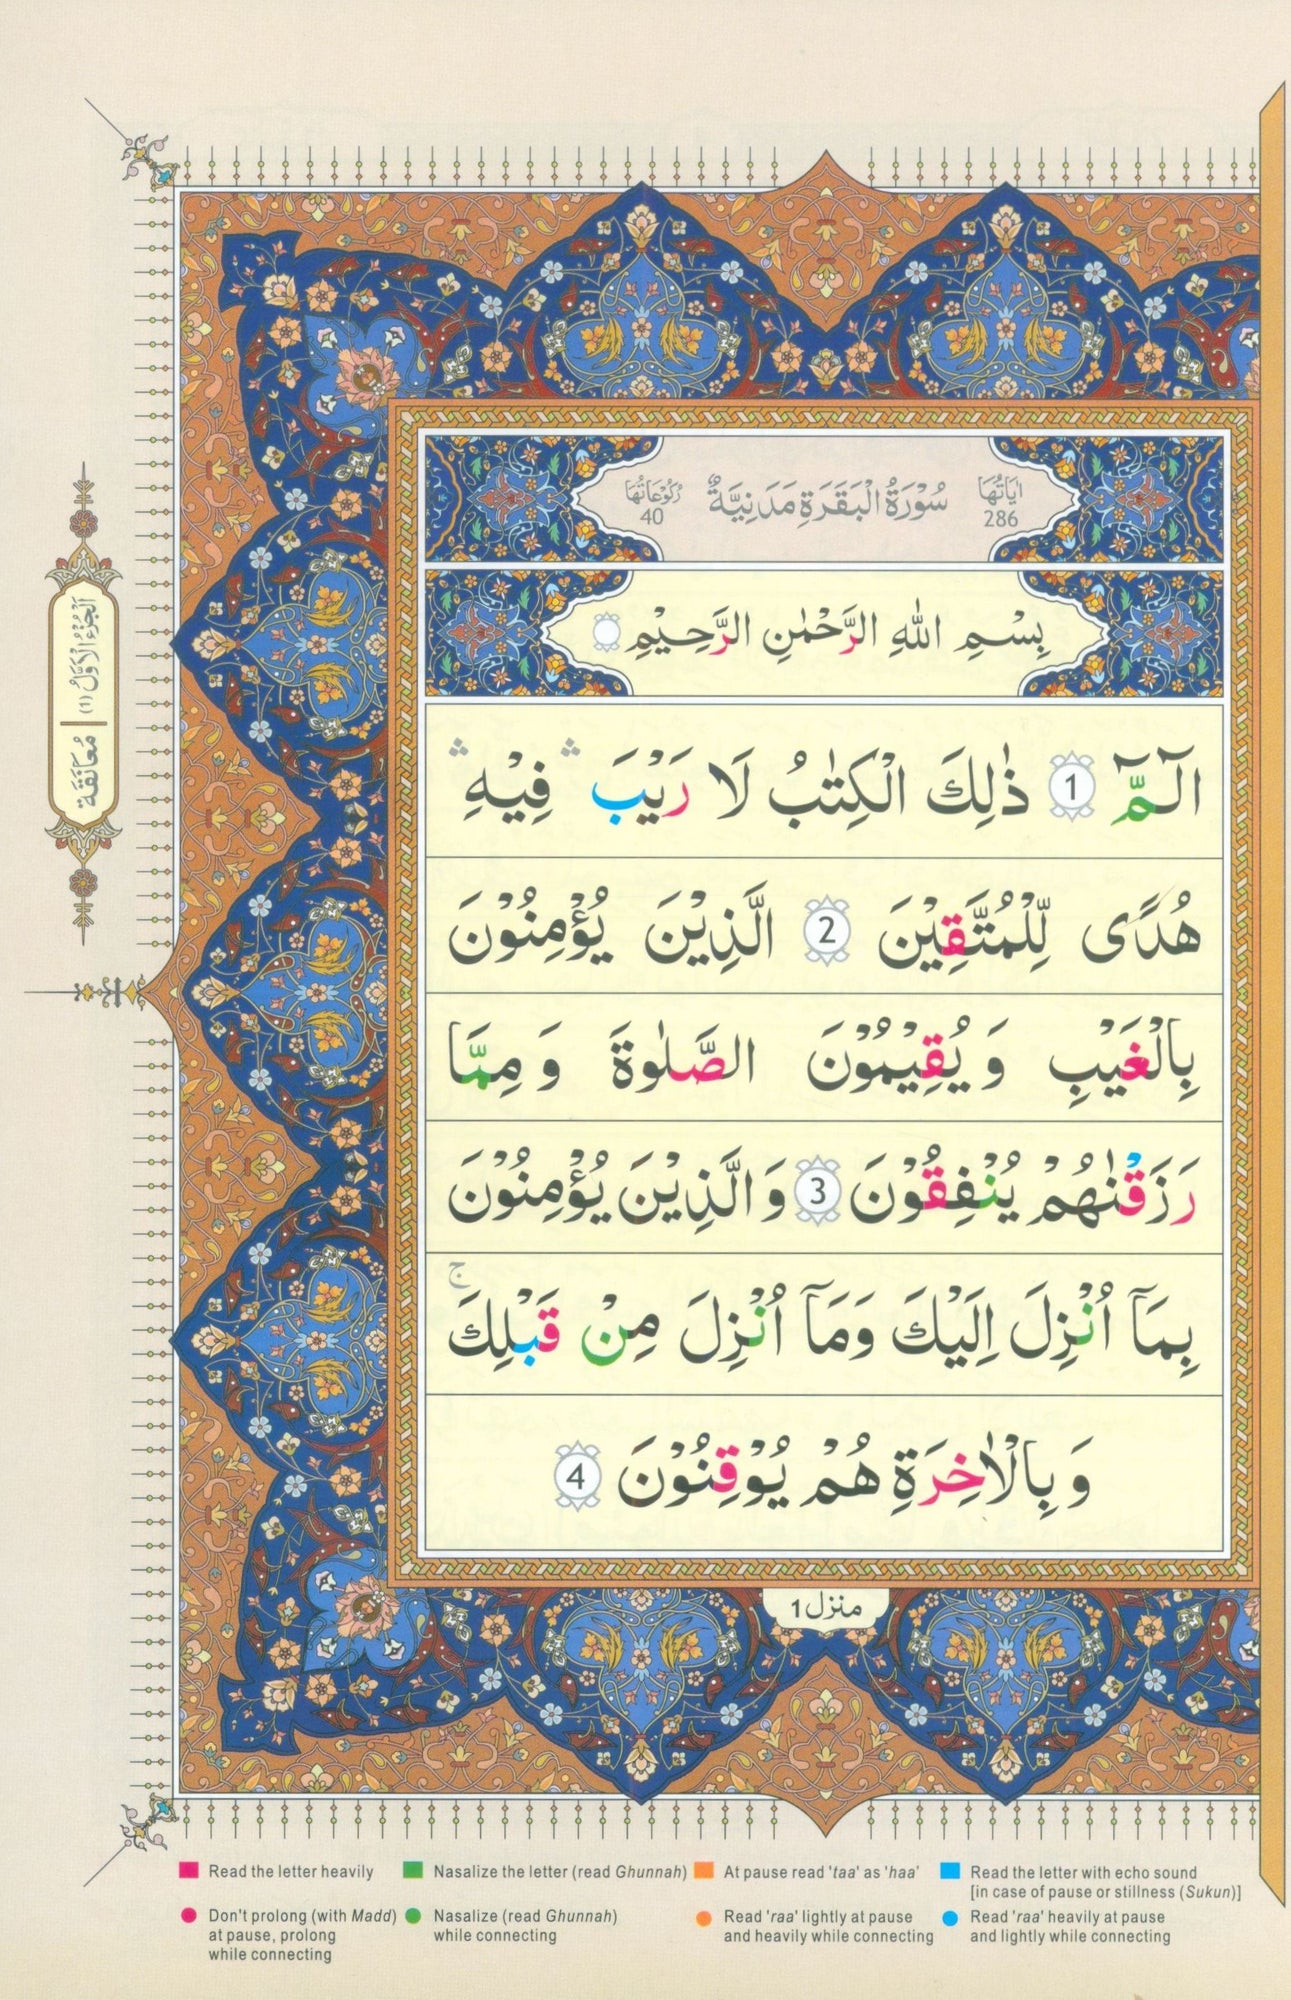 اٰيَاتُهَا 286 سُوْرَةُ الْبَقَرَةِ مَدَنِيَّةٌ رُكُوْعَاتُهَا 40
بِسْمِ اللهِ الرَّحْمٰنِ الرَّحِيْمِ
الٓـمّٓ 1 ذٰلِكَ الْكِتٰبُ لَا رَيْبَ ۛ فِيْهِ ۛ
هُدًى لِّلْمُتَّقِيْنَ 2 الَّذِيْنَ يُؤْمِنُوْنَ
بِالْغَيْبِ وَ يُقِيْمُوْنَ الصَّلٰوةَ وَ مِمَّا
رَزَقْنٰهُمْ يُنْفِقُوْنَ 3 وَ الَّذِيْنَ يُؤْمِنُوْنَ
بِمَآ اُنْزِلَ اِلَيْكَ وَمَآ اُنْزِلَ مِنْ قَبْلِكَ ۚ
وَ بِالْاٰخِرَةِ هُمْ يُوْقِنُوْنَ 4
منزل 1
اَلْجُزْءُ الْاَوَّلُ (1) | مُعَانَقَة
Read the letter heavily
Nasalize the letter (read Ghunnah)
At pause read 'taa' as 'haa'
Read the letter with echo sound
[in case of pause or stillness (Sukun)]
Don't prolong (with Madd)
at pause, prolong
while connecting
Nasalize (read Ghunnah)
while connecting
Read 'raa' lightly at pause
and heavily while connecting
Read 'raa' heavily at pause
and lightly while connecting